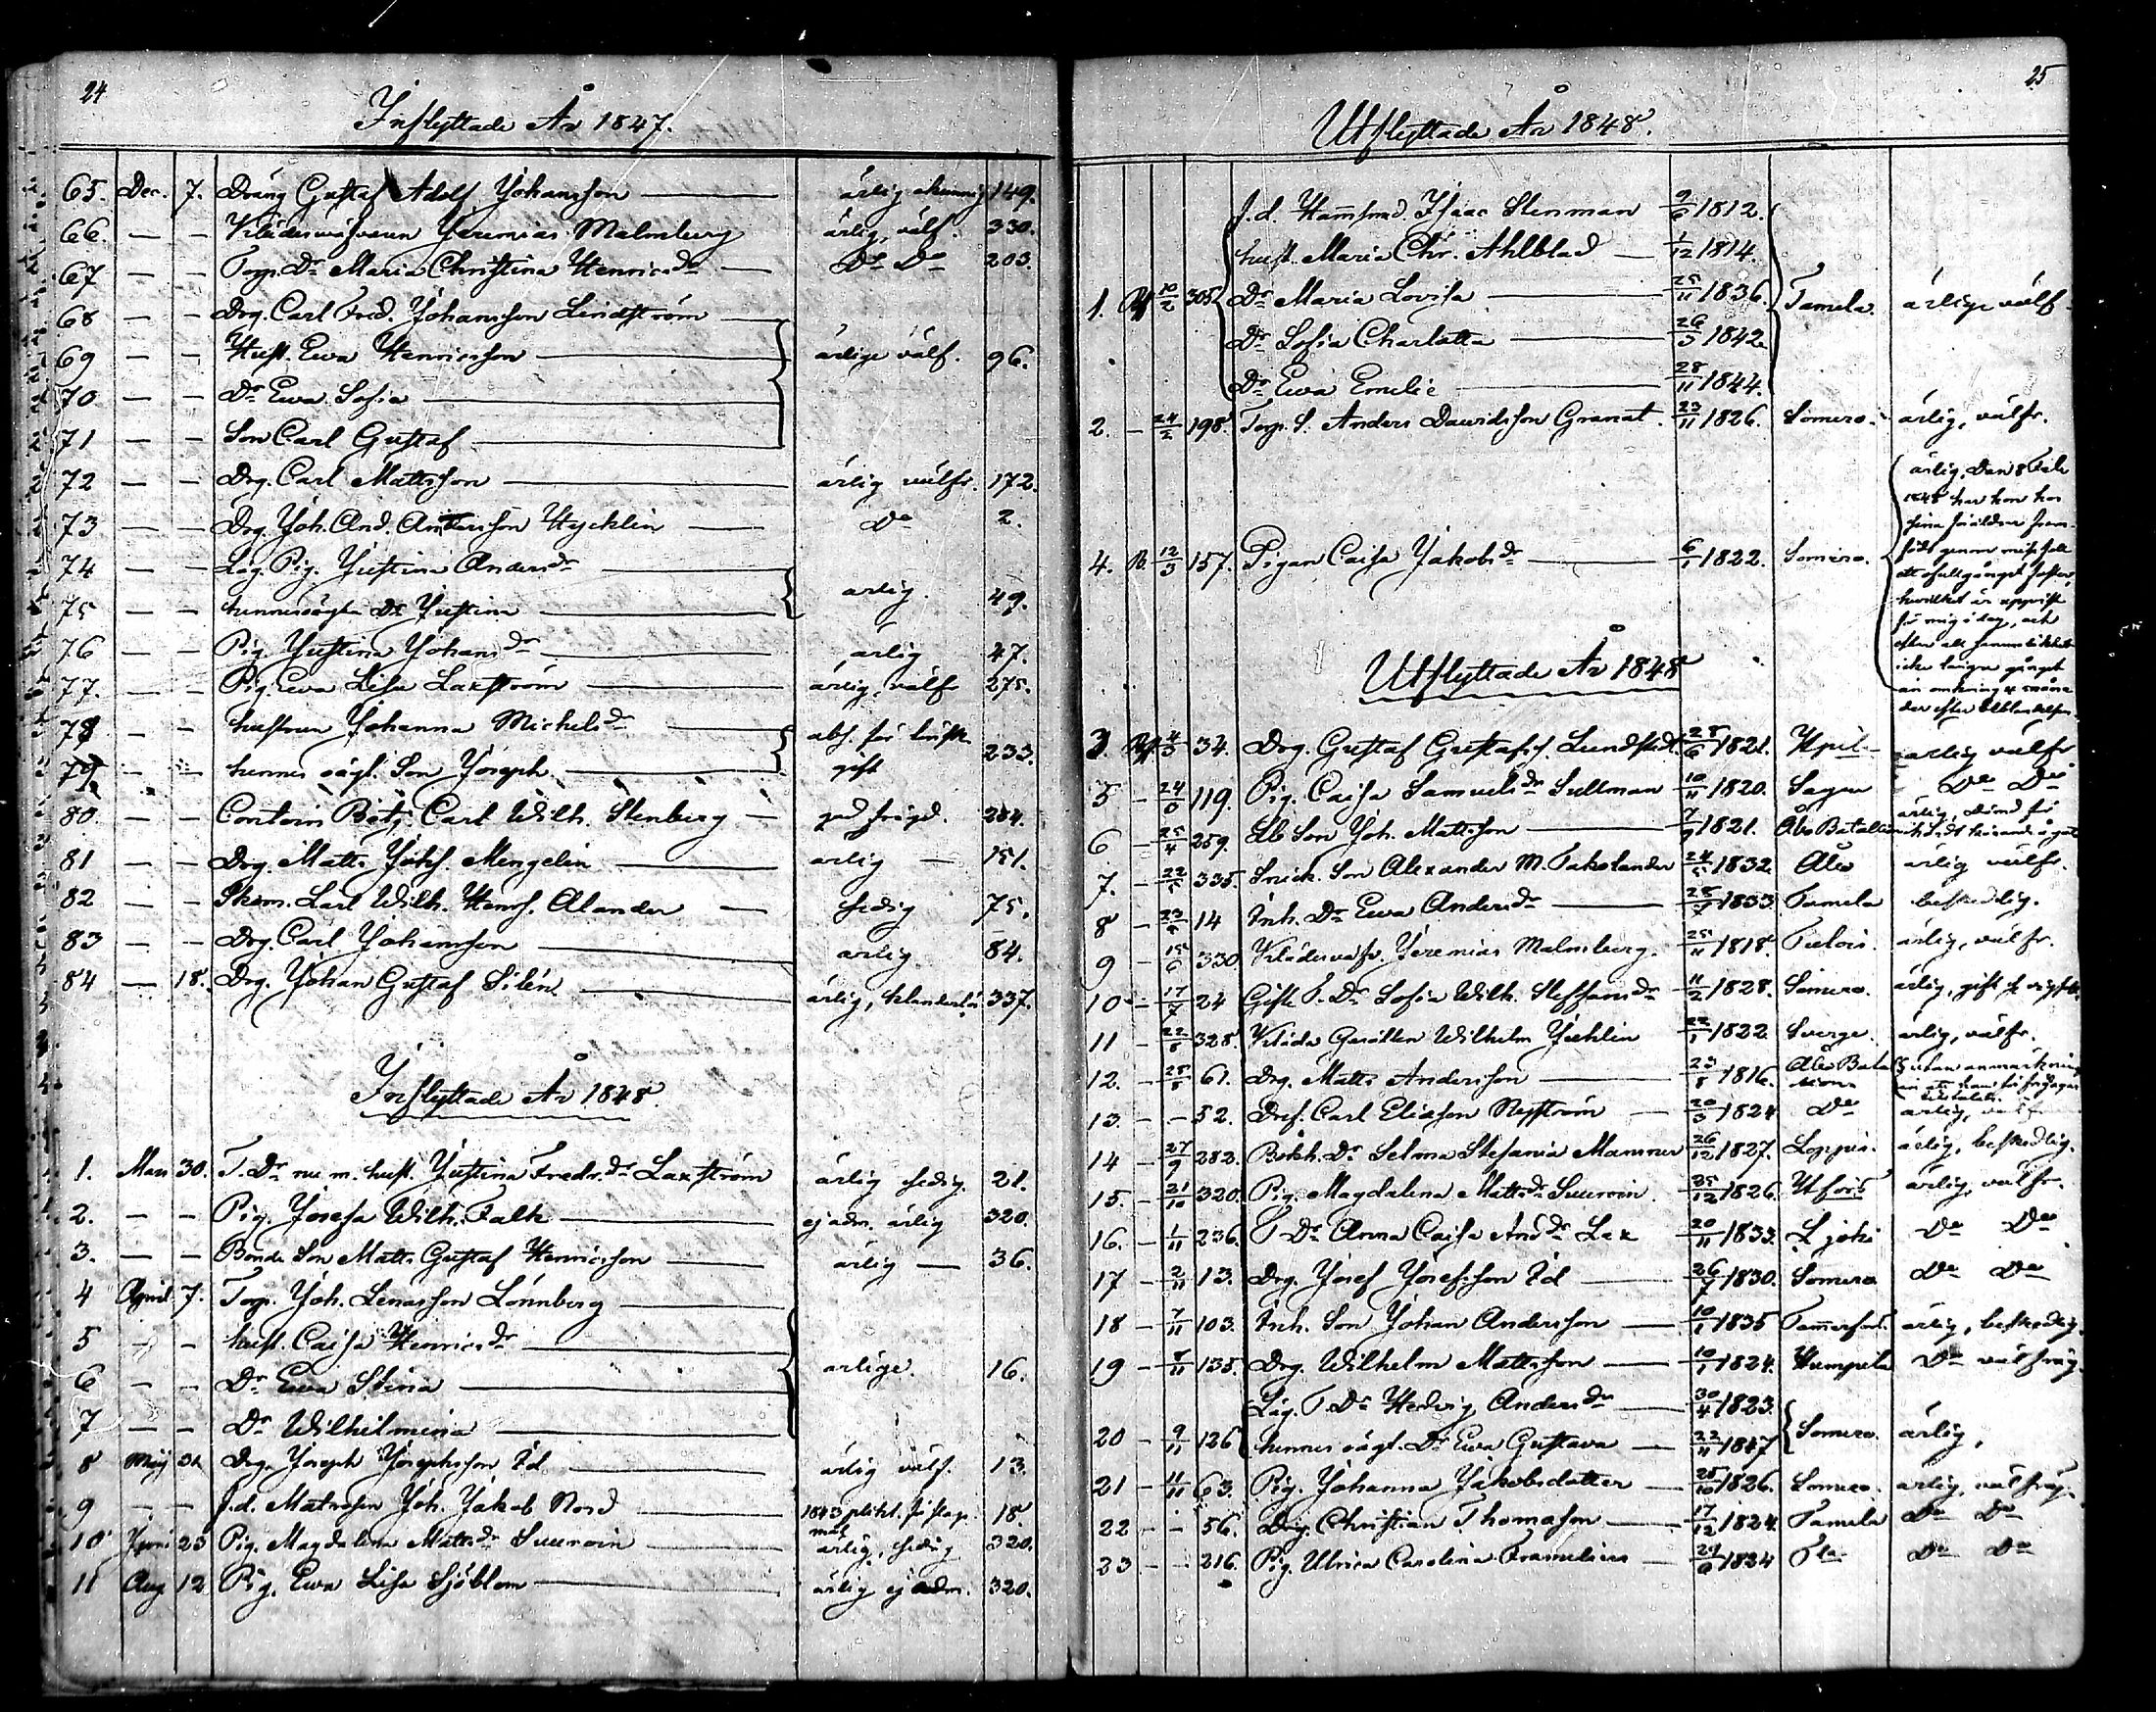 24
Inflyttade År 1847.
65. Dec. 7. Dräng Gustaf Adolf Johansson ärlig 149.
66. — — Klädesväfvaren Jeremias Malmberg ärlig, välf. 330.
67 — — Torp. Dr Maria Christina Henricsdr Do Do 203.
68 — — Drg. Carl Fred. Johansson Lindström
69 — — Hust. Ewa Henricsson ärlige välf. 96.
70 — — Dr Ewa Sofia
71 — — Son Carl Gustaf
72 — — Drg. Carl Mattsson ärlig välfr. 172.
73 — — Drg. Joh. And. Andersson Hycklin Do 2.
74 — — Läg. Pig. Justina Andersdr
75 — — hennes oägta Dr Justina ärlig. 49.
76 — — Pig. Justina Johansdr ärlig 47.
77. — — Pig. Ewa Lisa Laxström ärlig, välfr 275.
78 — — hustrun Johanna Michelsdr
79 — — hennes oägt. Son Joseph. gift 233.
80 — — Contoirs Betj. Carl Wilh. Stenberg god frejd. 284.
81 — — Drg. Matts Johs. Mengelin ärlig — 151.
82 — — Carl Wilh. Henrs. Alander — sedig 75.
83 — — Drg. Carl Johansson ärlig 84.
84 — 18. Drg. Johan Gustaf Silén ärlig, klanderlös 337.
Inflyttade År 1848.
1. Mars 30. T. Dr nu m. hust. Justina Fredr.dr Laxström ärlig sedig. 21.
2. — — Pig. Josefa Wilh. Falk ej adm. ärlig 320.
3. — — Bonde Son Matts Gustaf Henricsson ärlig — 36.
4 April 7. Torp. Joh. Lenasson Lönnberg
5 — — hust. Caisa Henricsdr
6 — — Dr Ewa Stina ärlige. 16.
7 — — Dr Wilhelmina
8 Maj 31 Drg. Joseph Josephsson Id ärlig välf. 13.
9 — — f.d. Matrosen Joh. Jakob Nord 1843 plikt. 18
10 Juni 23 Pig. Magdalena Mattsdr Suuroin ärlig, sedig 320.
11 Aug 12 Pig. Ewa Lisa Sjöblom ärlig ej adm. 320.
25
Utflyttade År 1848.
f.d. Isaac Stenman 9/6 1812.
hust. Maria Chr. Ahlblad 1/12 1814.
1. 10/2 305 Dr Maria Lovisa 25/11 1836. Tamela. ärlige välf
Dr Sofia Charlotta 26/3 1842
Dr Ewa Emelie 28/11 1844.
2. — 24/2 198. Torp. S. Anders Davidsson Granat. 23/11 1826. Somero. ärlig, välfr.
ärlig, Den 8 Feb.
1848 har hon hos
sina föräldrar fram-
födt genom
4. 12/3 157. Pigan Caisa Jakobsdr 6/1 1822. Somero.
för mig i dag, och
icke längre gånget
än omkring 4 måna
der efter
Utflyttade År 1848
3. 4/3 34. Drg. Gustaf Gustafs. Lundstedt 28/6 1821. ärlig välfr
5 — 119. Pig. Caisa Samuelsdr Sullman 10/11 1820. Sagu Do Do
6 — 25/4 259. Son Joh. Mattsson 7/9 1821. Åbo Batallion ärlig,
7. — 22/5 335. Snick. Son Alexander M. Takolander 24/5 1832 Åbo ärlig välfr.
8 — 23/5 14 Inh. Dr Ewa Andersdr 28/7 1833 Tamela beskedlig.
9 — 15/6 330 Klädesväfv. Jeremias Malmberg. 25/11 1818. Tulois. ärlig, välfr.
10 — 17/7 24 Gifte T. Dr Sofia Wilh. Steffansdr 11/2 1828. Somero. ärlig, gift
11 — 22/8 328. Kläde Gesällen Wilhelm 22/1 1822 Sverge. ärlig, välfr.
12. — 28/8 61. Drg. Matts Andersson 23/8 1816. Åbo Bata lion utan anmärkning
13. — — 52. Dref. Carl Eliasson Nyström — 20/3 1824 Do ärlig,
14 — 27/9 282. Bokh. Dr Selma Stefania Mammer 26/12 1827. Loppis. ärlig, beskedlig.
15. — 21/10 320. Pig. Magdalena Mattsdr Suuroin. 25/12 1826. ärlig, välfr.
16. — 1/11 236. T Dr Anna Caisa Andsdr Lax 20/11 1833. Ljoki Do Do
17 — 2/11 13. Drg. Josef Josefsson Id 26/7 1830. Somero Do Do
18 — 7/11 103. Inh. Son Johan Andersson 10/1 1835 Tammerfors. ärlig, beskedlig.
19 — 8/11 135. Drg. Wilhelm Mattsson 10/1 1824. Humpila Do välfräg.
Läg. T. Dr Hedvig Andersdr 30/4 1823.
20 — 9/11 126 hennes oägt. Dr Ewa Gustava 22/11 1847 Somero. ärlig,
21 — 11/11 63. Pig. Johanna Jakobsdotter 25/10 1826. Somero. ärlig, välfräg.
22 — — 56. Drg. Christian Thomasson 17/12 1824. Tamela Do Do
23 — — 216. Pig. Ulrica Carolina Framelius 1824 Do Do